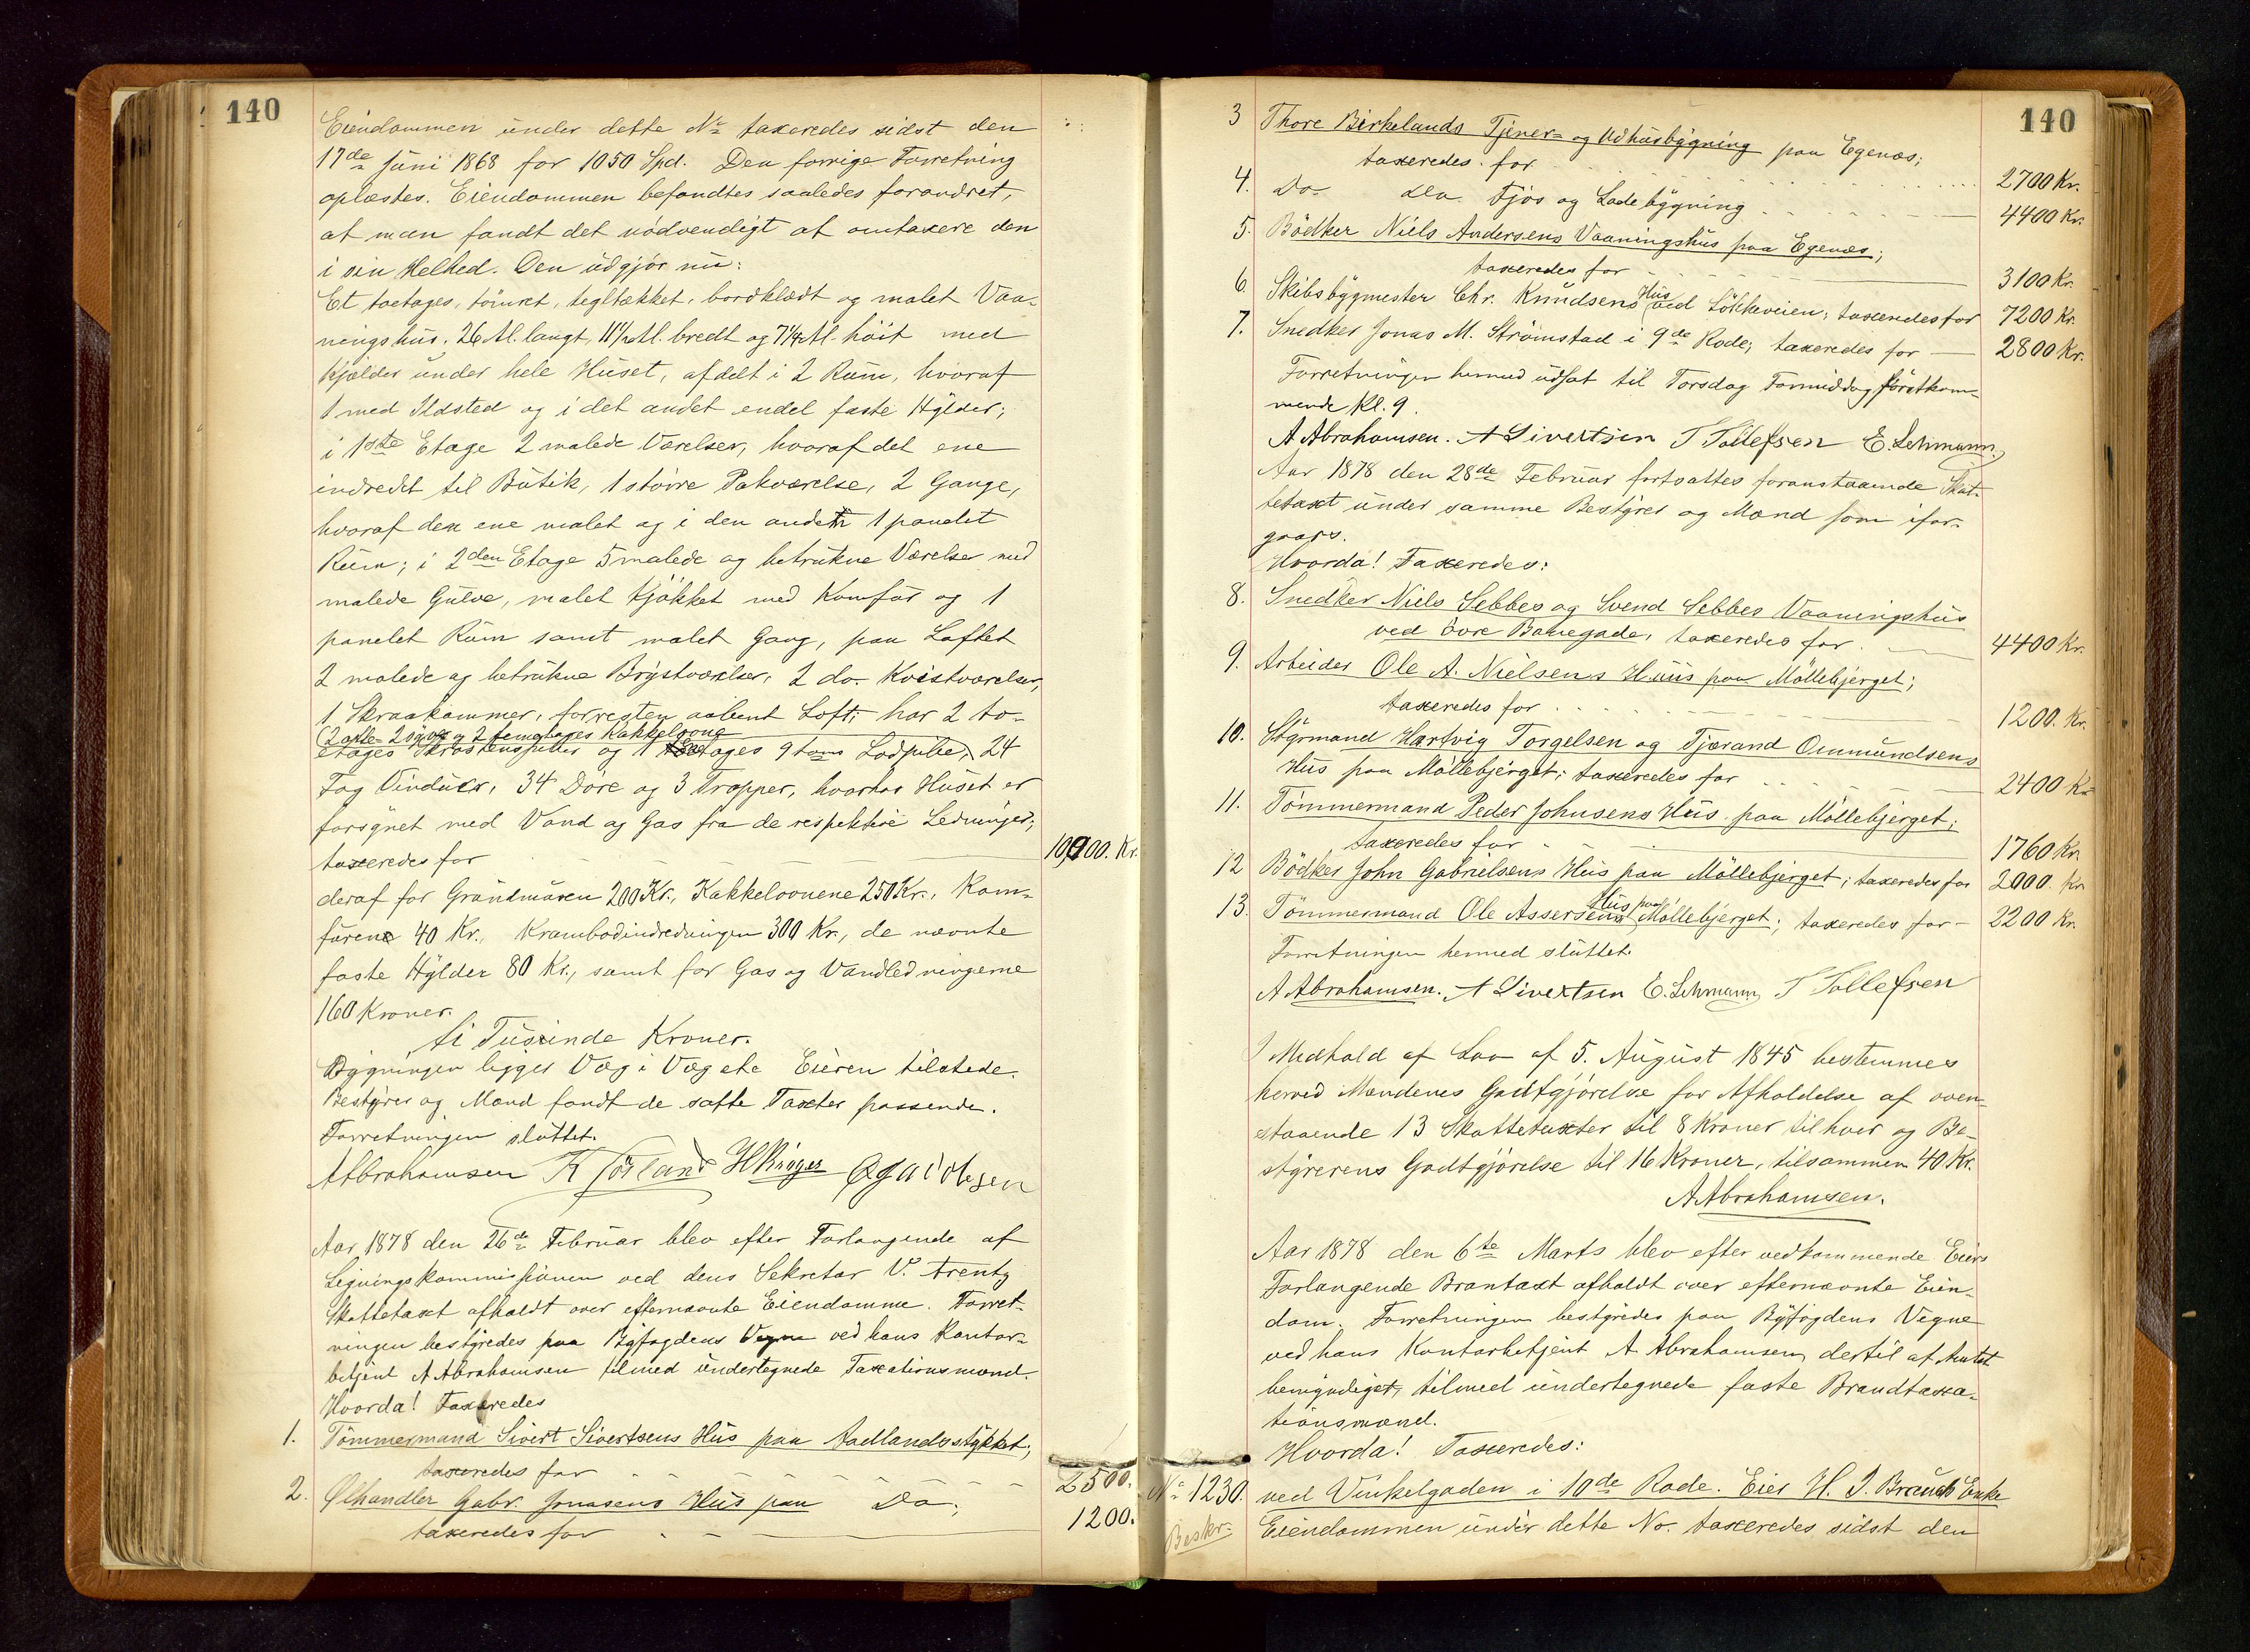 140
Eiendommen under dette No taxeredes sidst den
17de Juni 1868 for 1050 Spd. Den forrige Forretning
oplæstes. Eiendommen befandtes saaledes forandret,
at man fandt det nödvendigt at omtaxere den
i sin Helhed. Den udgjör nu:
Et toetages, tömret, tegltækket, bordklædt og malet Vaa-
ningshus, 26 Al. langt, 11 1/2 Al. bredt og 7 1/4 Al. höit med
Kjælder under hele Huset, afdelt i 2 Rum, hvoraf
1 med Ildsted og i det andet endel faste Hylder;
i 1ste Etage 2 malede Værelser, hvoraf det ene
indredet til Butik, 1 större Pakværelse, 2 Gange,
hvoraf den ene malet og i den anden 1 panelet
Rum; i 2den Etage 5 malede og betrukne Værelser med
malede Gulve, malet Kjökket med Komfur og 1
panelet Rum samt malet Gang, paa Loftet
2 malede og betrukne Brystværelser, 2 do. Kvistværelser,
1 Skraakammer, forresten aabent Loft; har 2 to-
(2 otte- 2 og 2 femetages Kakkelovne
etages Skorstenspiber og 1 etages 9 toms Lodpibe, 24
Fag Vinduer, 34 Döre og 3 Trapper, hvorhos Huset er
forsynet med Vand og Gas fra de respektive Ledninger;
taxeredes for 10,000. Kr.
deraf for Grundmuren 200 Kr., Kakkelovnene 250 Kr., Kom-
furene 40 Kr., Krambodindredningen 300 Kr., de nævnte
faste Hylder 80 Kr., samt for Gas og Vandledningerne
160 Kroner.
ti Tusinde Kroner.
Bygningen ligger Væg i Væg etc Eieren tilstede.
Bestyrer og Mænd fandt de satte Taxter passende.
Forretningen sluttet.
A Abrahamsen K Jörland H Ringes O Jacobsen
Aar 1878 den 26de Februar blev efter Forlangende af
Ligningskommissionen ved dens Sekretær V. Arentz
Skattetaxt afholdt over efternævnte Eiendomme. Forret-
ningen bestyredes paa Byfogdens Vegne ved hans Kontor-
betjent A Abrahamsen tilmed undertegnede Taxationsmænd.
Hvorda! Taxeredes
1. Tömmermand Sivert Sivertsens Hus paa Aadlandsstykket;
taxeredes for 2500.
2. Ølhandler Gabr. Jonasens Hus paa Do;
taxeredes for 1200.
140
3 Thore Birkelands Tjener- og Udhusbygning paa Egenæs;
taxeredes for 2700 Kr.
4. Do do Fjös og Ladebygning 4400 Kr.
5. Bödker Niels Andersens Vaaningshus paa Egenæs;
taxeredes for 3100 Kr.
6. Skibsbygmester Chr. Knudsens Hus ved Lökkeveien; taxeredes for 7200 Kr.
7. Snedker Jonas M. Strömstad i 9de Rode; taxeredes for 2800 Kr.
Forretningen hermed udsat til Torsdag Formiddag förstkom-
mende Kl. 9.
A Abrahamsen. A Sivertsen T Tollefsen E. Lehmann.
Aar 1878 den 28de Februar fortsattes foranstaaende Skat-
tetaxt under samme Bestyrer og Mænd som ifor-
gaars.
Hvorda! Taxeredes:
8. Snedker Niels Sebbes og Svend Sebbes Vaaningshus
ved övre Banegade, taxeredes for 4400 Kr.
9. Arbeider Ole A. Nielsens Huus paa Möllebjerget;
taxeredes for 1200. Kr.
10. Styrmand Hartvig Torgelsen og Tjærand Ommundsens
Hus paa Möllebjerget; taxeredes for 2400 Kr
11. Tömmermand Peder Johnsens Hus paa Möllebjerget;
taxeredes for 1760 Kr.
12 Bödker John Gabrielsens Hus paa Möllebjerget; taxeredes for 2000. Kr
13. Tömmermand Ole Assersens Hus paa Möllebjerget; taxeredes for 2200 Kr.
Forretningen hermed sluttet.
A Abrahamsen. A Sivertsen E. Lehmann T Tollefsen
I Medhold af Lov af 5. August 1845 bestemmes
herved Mændenes Godtgjörelse for Afholdelse af oven-
staaende 13 Skattetaxter til 8 Kroner til hver og Be-
styrerens Godtgjörelse til 16 Kroner, tilsammen 40 Kr.
A Abrahamsen.
Aar 1878 den 6te Marts blev efter vedkommende Eiers
Forlangende Brantaxt afholdt over efternævnte Eien-
dom. Forretningen bestyredes paa Byfogdens Vegne
ved hans Kontorbetjent A. Abrahamsen, dertil af Amtet
bemyndiget, tilmed undertegnede faste Brandtaxa-
tionsmænd.
Hvorda! Taxeredes:
No 1230. ved Vinkelgaden i 10de Rode. Eier H. J. Brauns Enke
Beskr. Eiendommen under dette No. taxeredes sidst den